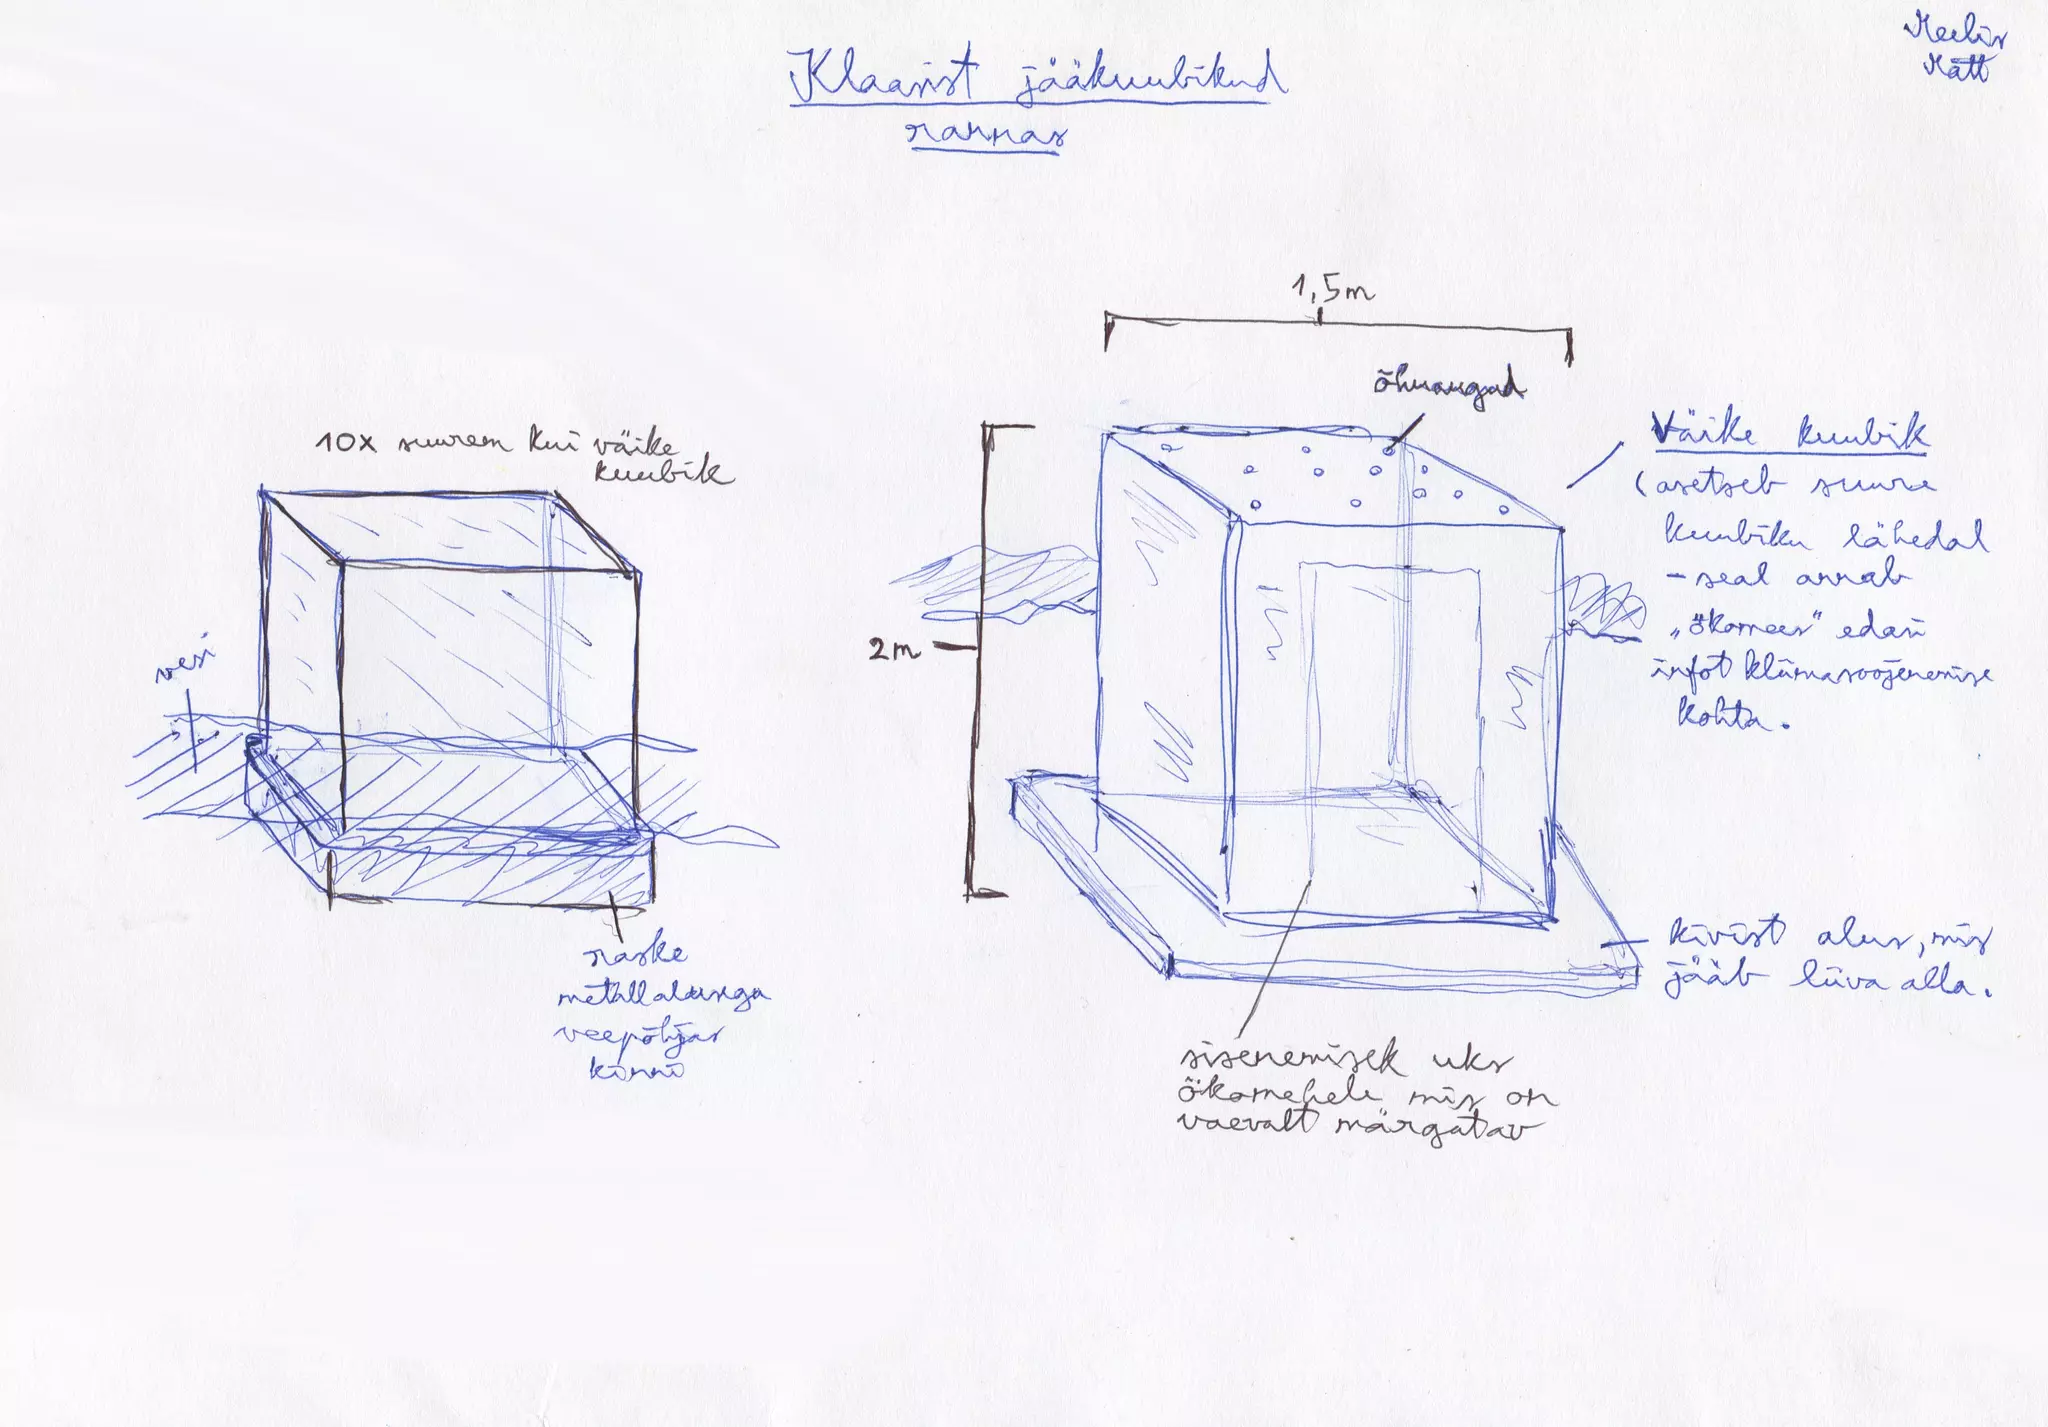 Meelis
Mätt
Klaasist jääkuubikud
rannas
1,5m
õhuaugad
10x suurem kui väike
kuubik
Väike kuubik
(asetseb suure
kuubiku lähedal
- seal annab
"ökomees" edasi
infot kliimasoojenemise
kohta.
vesi
2m
raske
metallalusega
veepõhjas
kinni
kivist alus, mis
jääb liiva alla.
sisenemisek uks
ökomehele mis on
vaevalt märgatav